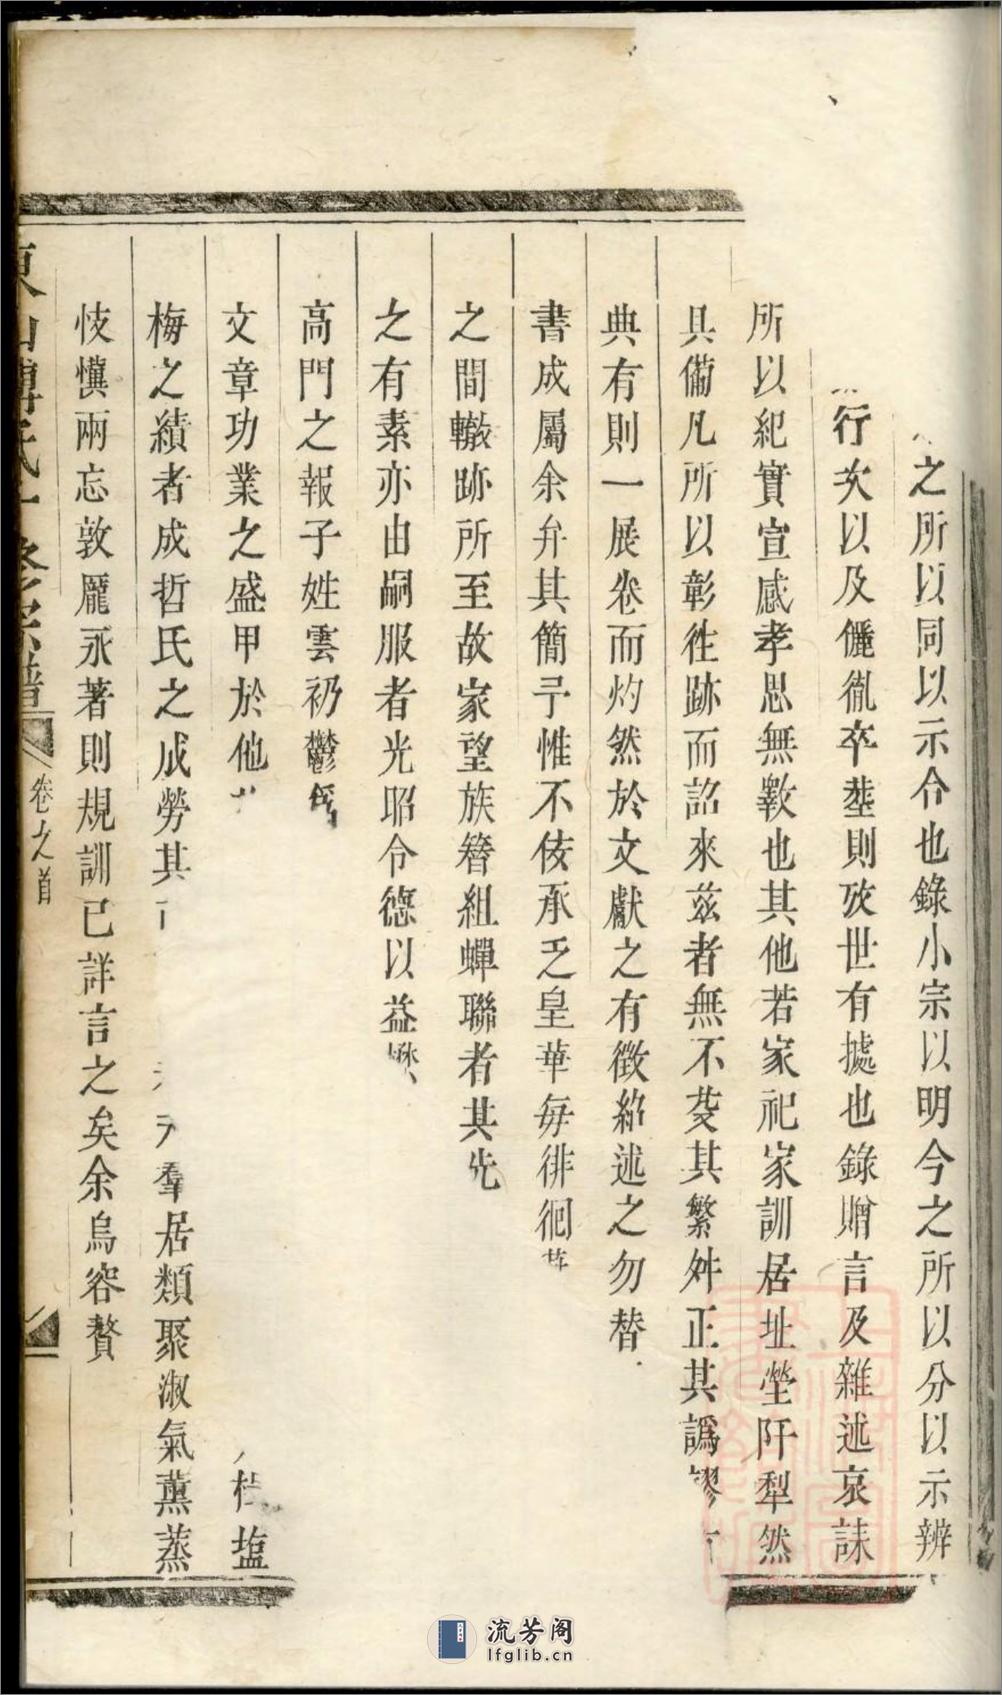 之所以同以示合也錄小宗以明今之所以分以示辨
行次以及儷胤卒塟則攷世有據也錄贈言及雜述哀誄
所以紀實宣感孝思無斁也其他若家祀家訓居址塋阡犁然
具備凡所以彰徃跡而詔來茲者無不芟其繁舛正其譌謬
典有則一展卷而灼然於文獻之有徵紹述之勿替
書成屬余弁其簡予惟不佞承乏皇華每徘徊
之間轍跡所至故家望族簪組蟬聯者其先
之有素亦由嗣服者光昭令德以益懋
高門之報子姓雲礽鬱
文章功業之盛甲於他 塩
梅之績者成哲氏之成勞其 羣居類聚淑氣薰蒸
忮懻兩忘敦龐永著則規訓已詳言之矣余烏容贅
卷之首
流芳阁
lfglib.cn